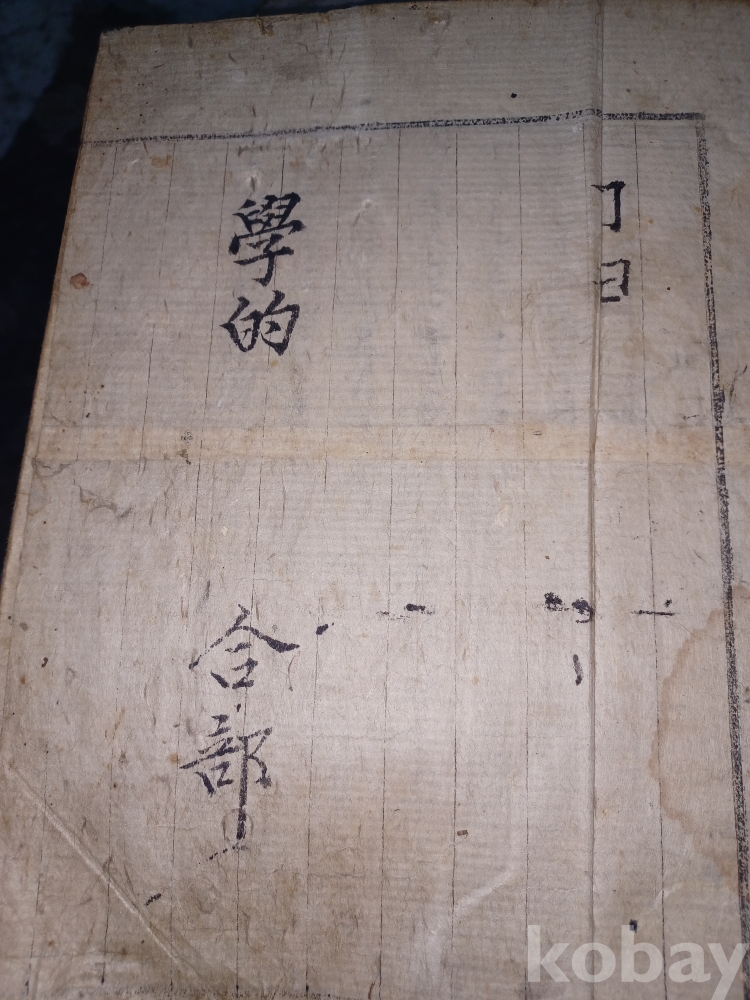 學的
合部
kobay